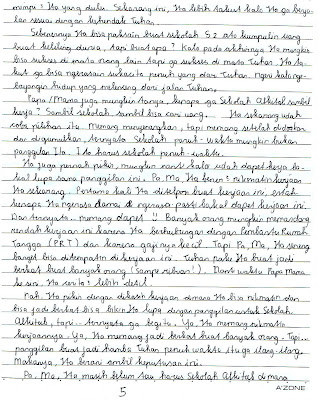 mimpi? Ito yang dulu. Sekarang ini, Ito lebih takut kalo Ito ga berja-
lan sesuai dengan kehendak Tuhan.
Sebenernya Ito bisa paksain buat sekolah S2 ato kumpulin uang
buat keliling dunia, tapi buat apa? Kalo pada akhirnya Ito mungkin
bisa sukses di mata orang lain tapi ga sukses di mata Tuhan. Ito ta-
kut ga bisa ngerasain sukacita penuh yang dari Tuhan. Ngeri kalo nge-
bayangin hidup yang melenceng dari jalan Tuhan.
Papa/Mama juga mungkin tanya, kenapa ga Sekolah Alkitab sambil
kerja? Sambil sekolah, sambil bisa cari uang. Ito sekarang udah
coba pilihan itu. Memang menyenangkan, tapi memang setelah didoakan
dan digumulkan, ternyata Sekolah penuh-waktu mungkin bukan
panggilan Ito. Ito harus sekolah penuh-waktu.
Ito juga pernah pikir, mungkin nanti kalo udah dapet kerja ba-
kal lupa sama panggilan ini. Pa, Ma, Ito bener-bener nikmatin kerjaan
Ito sekarang. Pertama kali Ito ditelpon buat kerjaan ini, entah
kenapa Ito ngerasa damai & ngerasa pasti bakal dapet kerjaan ini.
Dan ternyata.. memang dapet!! Banyak orang mungkin memandang
rendah kerjaan ini karena Ito berhubungan dengan Pembantu Rumah
Tangga (PRT) dan karena gajinya kecil. Tapi Pa, Ma, Ito seneng
banget bisa ditempatin di kerjaan ini. Tuhan pake Ito buat jadi
berkat buat banyak orang (sampe ribuan!). Don't waktu Papa Mama
ke sini, Ito cerita² lebih detil.
Nah, Ito pikir dengan dikasih kerjaan dimana Ito bisa nikmatin dan
bisa jadi berkat bisa bikin Ito lupa dengan panggilan untuk Sekolah
Alkitab, tapi.. ternyata ga begitu. Ya, Ito memang nikmatin
kerjaannya. Ya, Ito memang jadi berkat buat banyak orang. Tapi..
panggilan buat jadi hamba Tuhan penuh waktu itu ga ilang-ilang.
Makanya, Ito berani ambil keputusan ini.
Pa, Ma, Ito masih belum tau harus Sekolah Alkitab di mana
5
A'ZONE